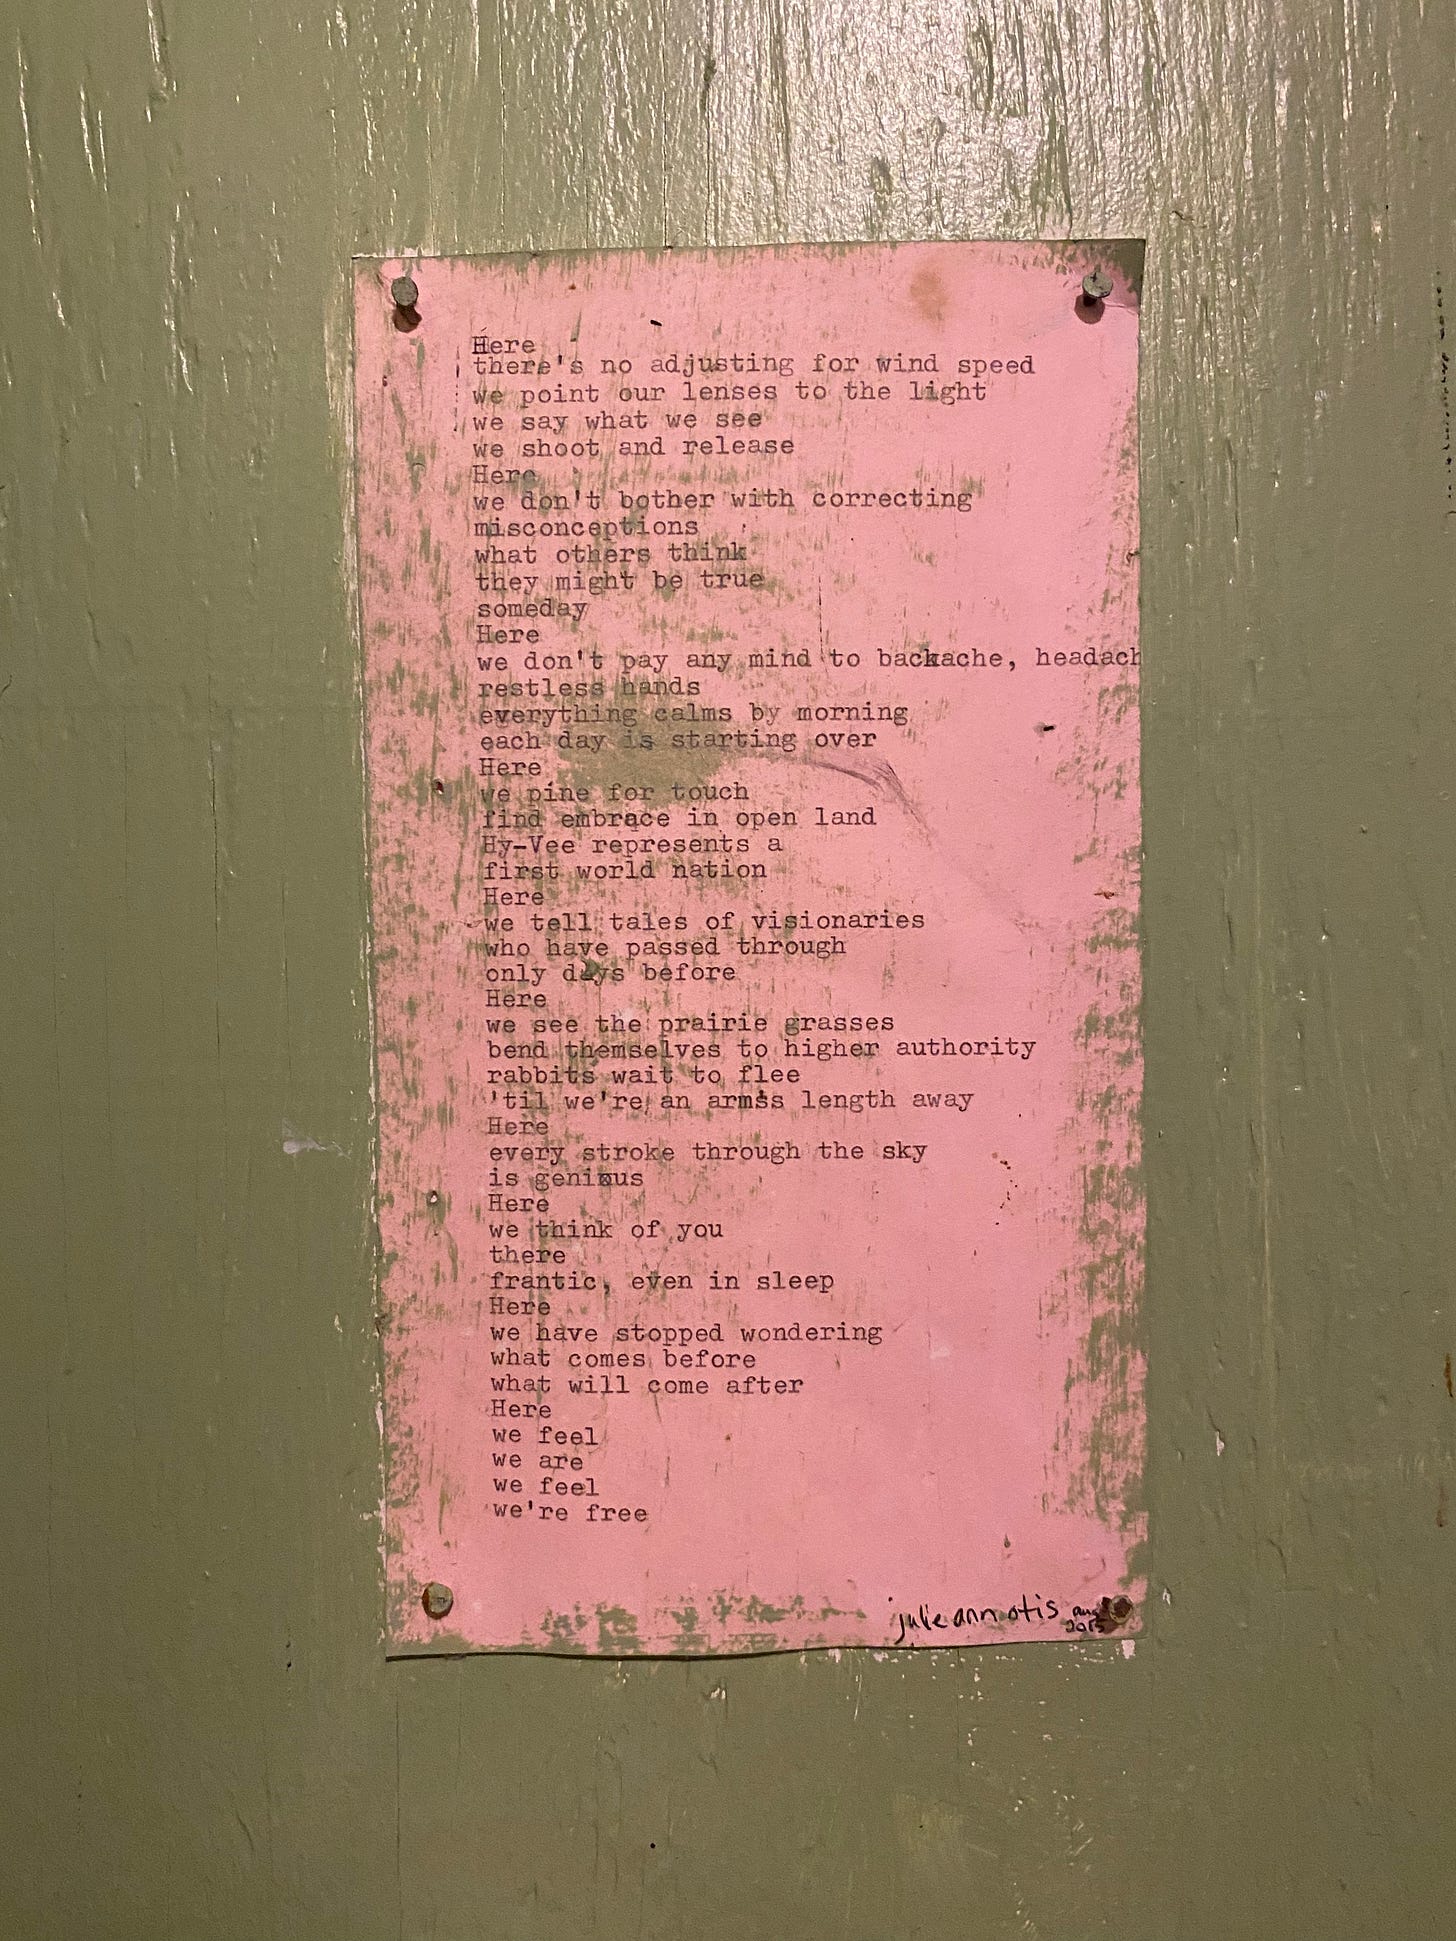 Here
there's no adjusting for wind speed
we point our lenses to the light
we say what we see
we shoot and release
Here
we don't bother with correcting
misconceptions
what others think
they might be true
someday
Here
we don't pay any mind to backache, headach
restless hands
everything calms by morning
each day is starting over
Here
we pine for touch
find embrace in open land
Hy-Vee represents a
first world nation
Here
we tell tales of visionaries
who have passed through
only days before
Here
we see the prairie grasses
bend themselves to higher authority
rabbits wait to flee
'til we're an arm's length away
Here
every stroke through the sky
is genius
Here
we think of you
there
frantic, even in sleep
Here
we have stopped wondering
what comes before
what will come after
Here
we feel
we are
we feel
we're free
julie ann otis aug
2015